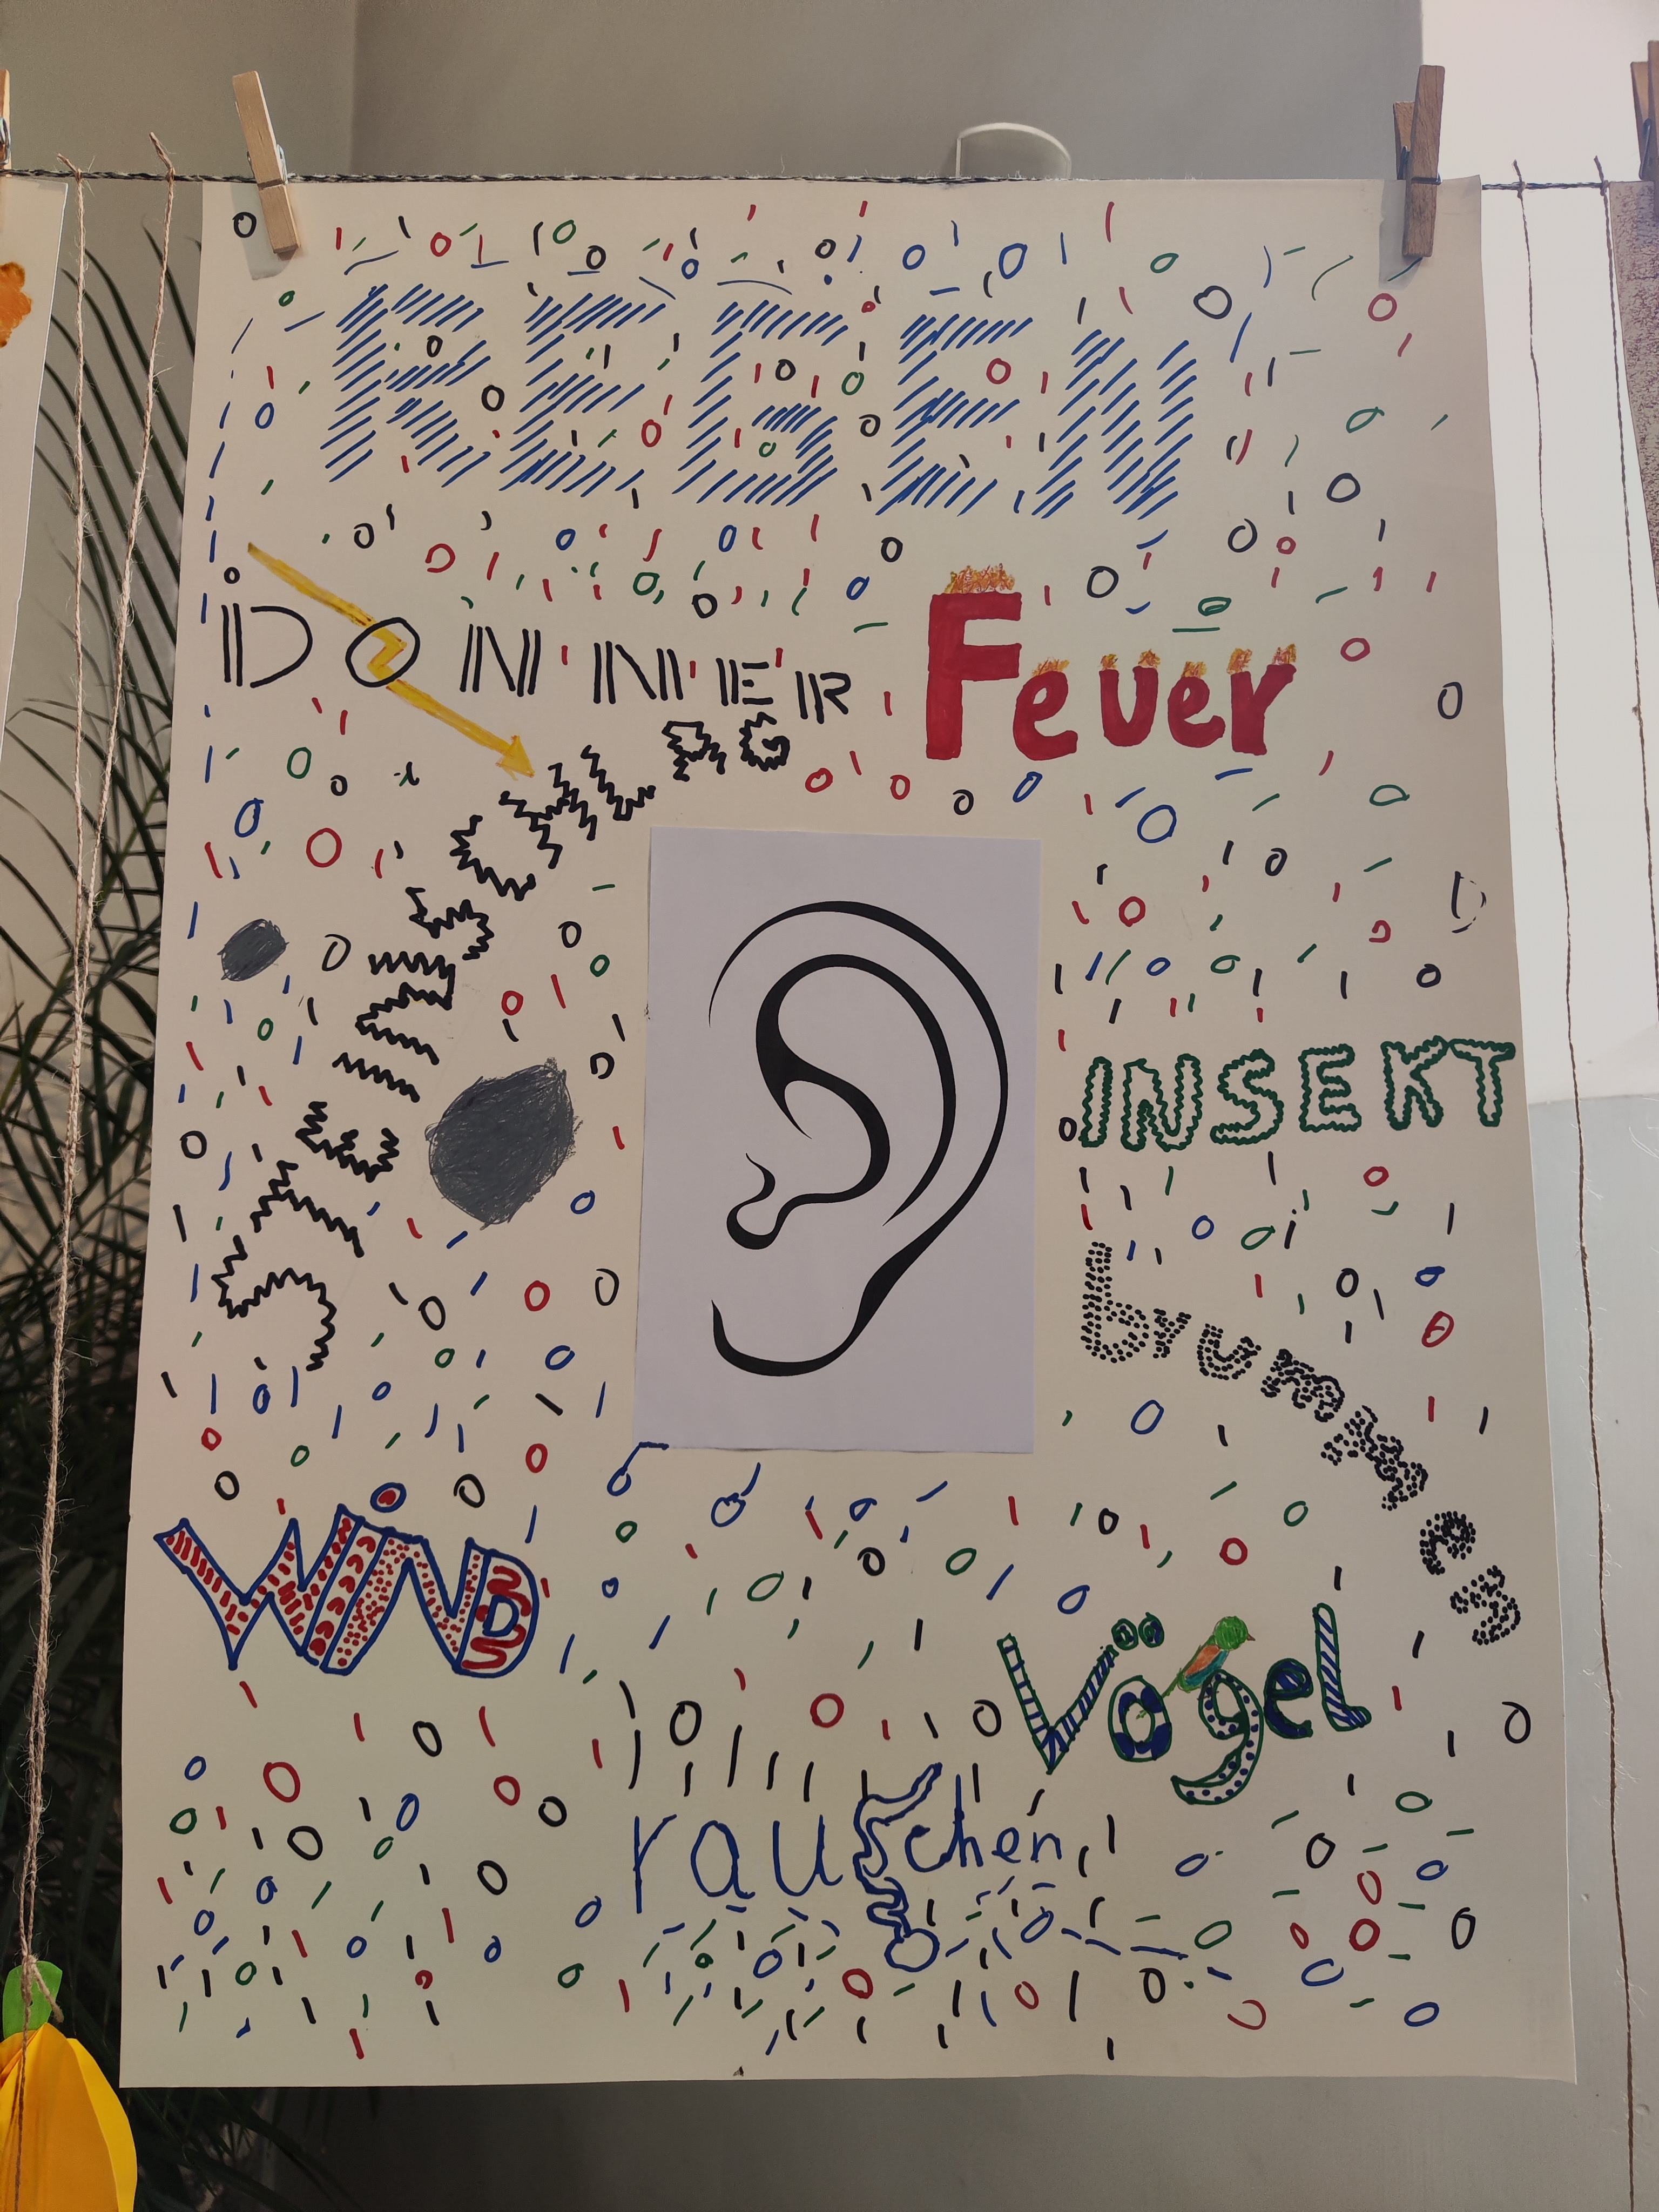 REGEN
DONNER
Feuer
STEINSCHLAG
INSEKT
brummen
WiND
Vögel
rauschen